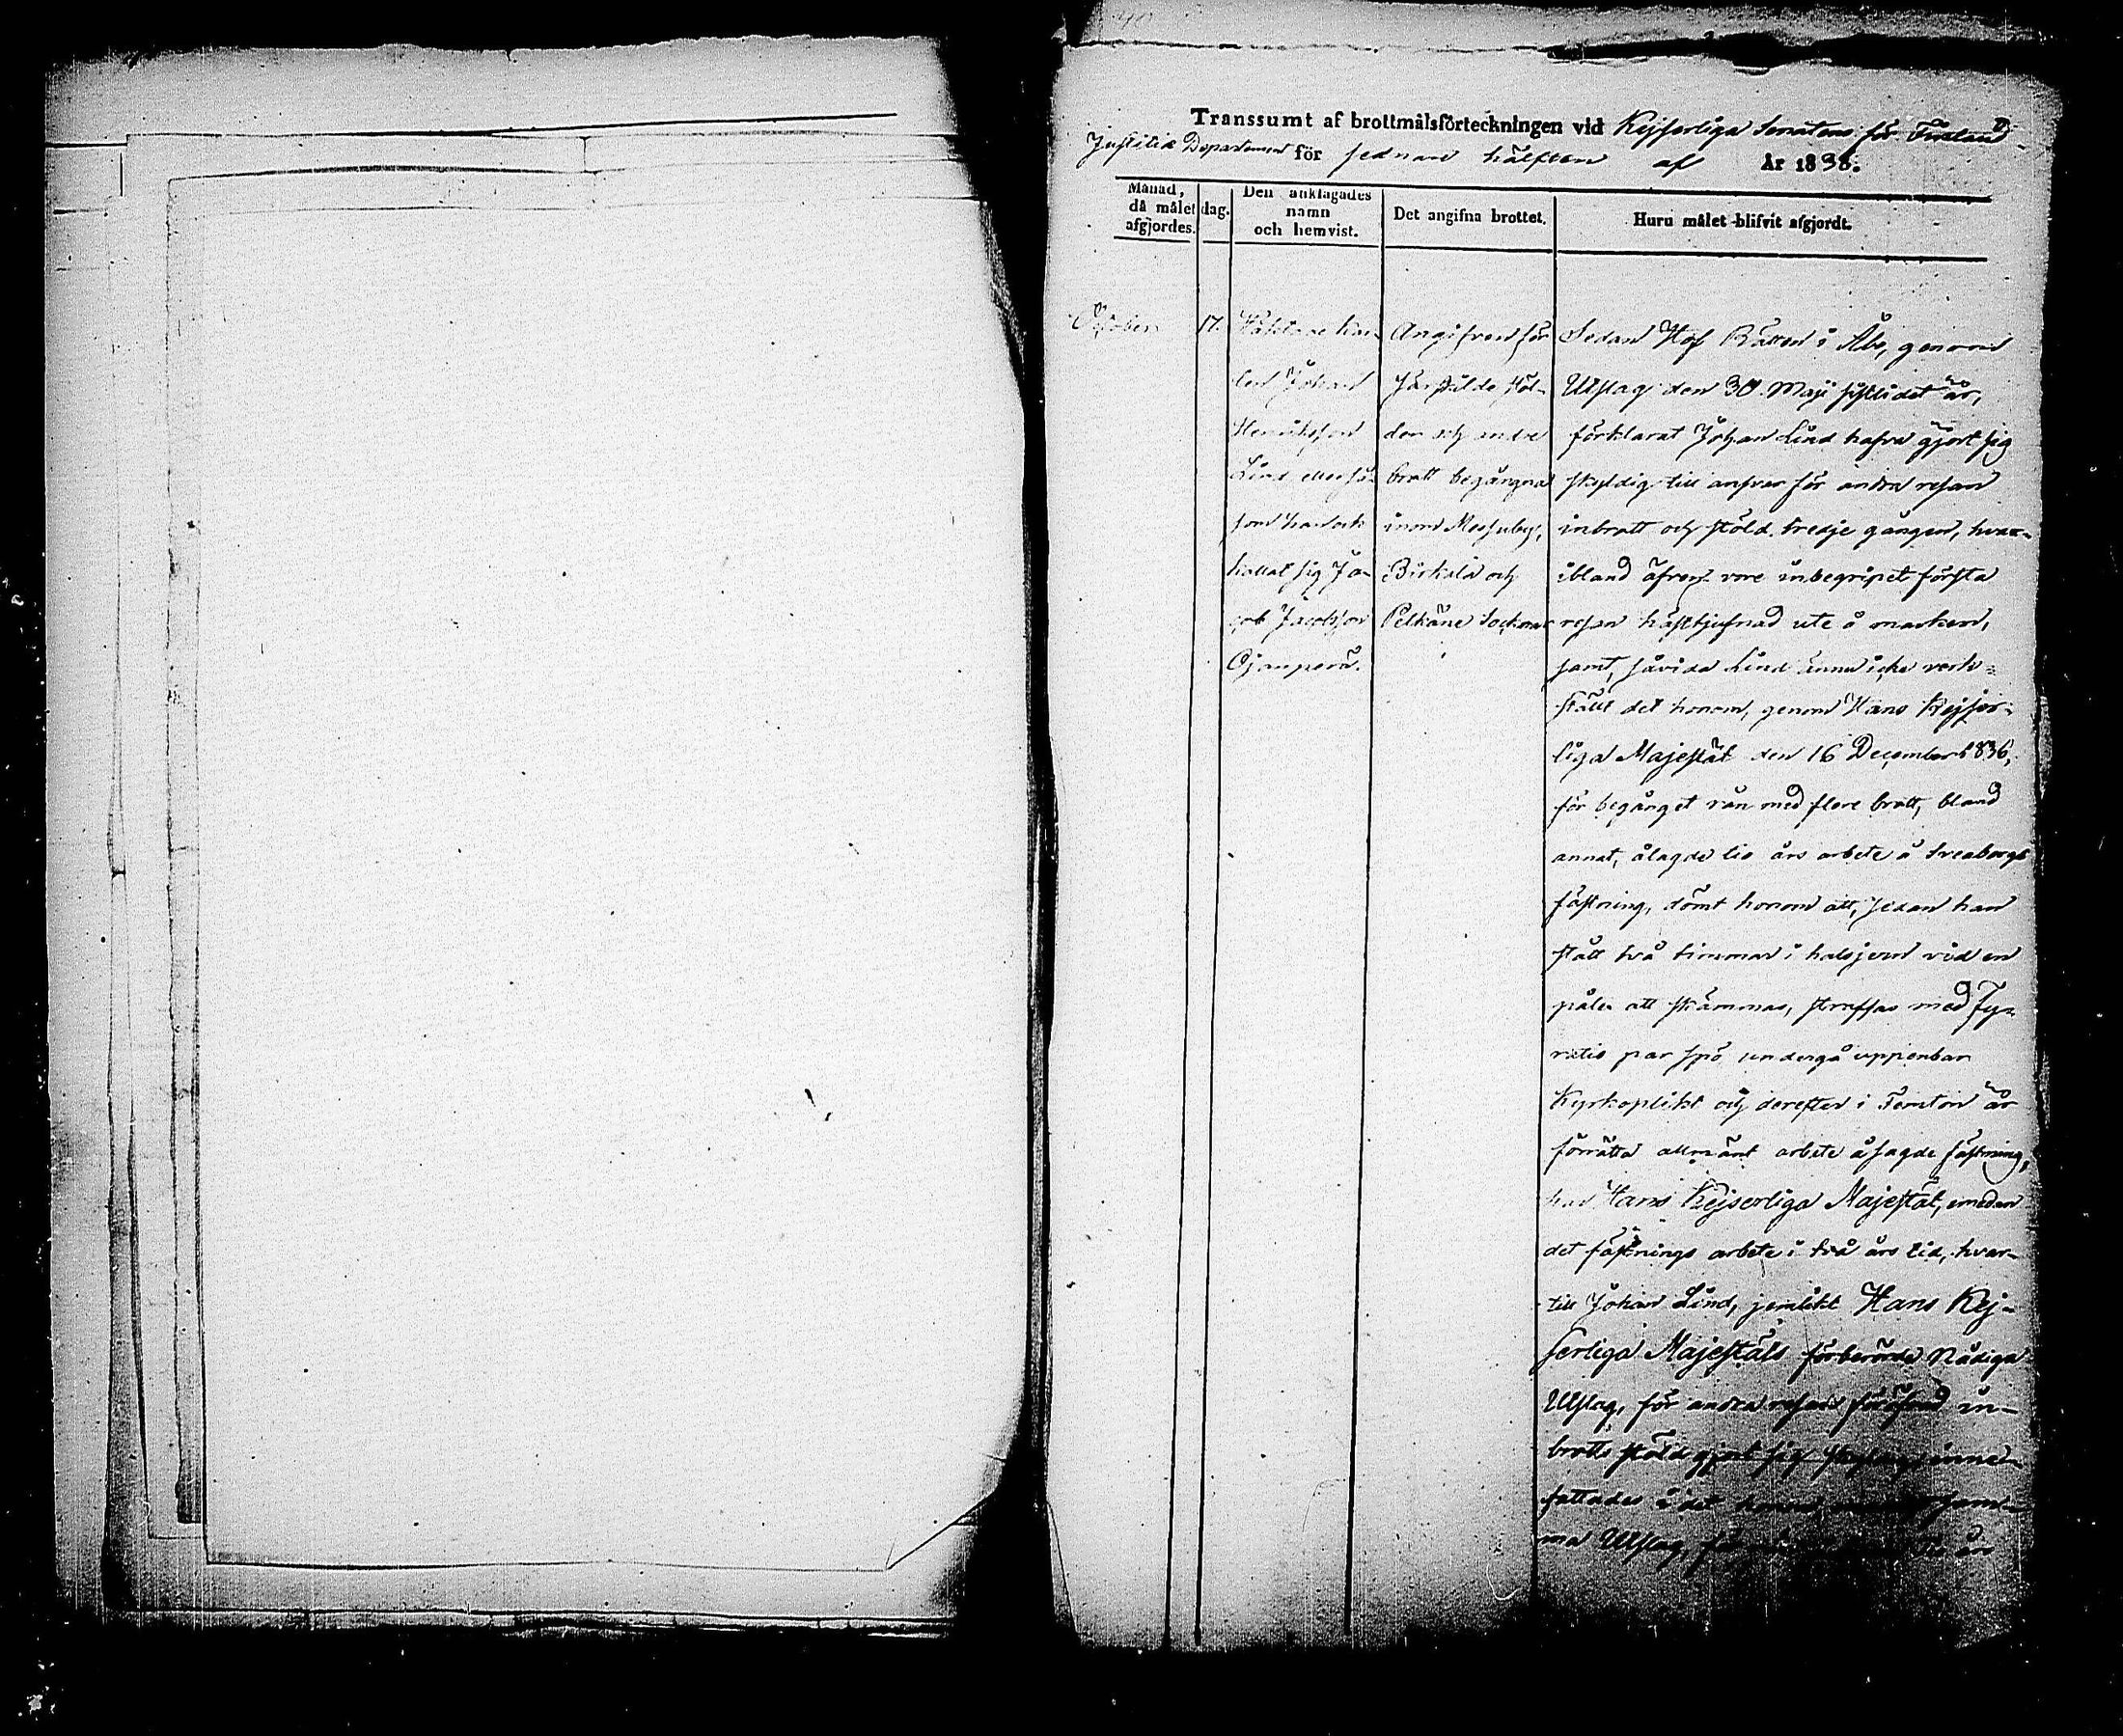 Transsumt af brottmålsförteckningen vid Kejserliga Senatens för Finland
Justitiæ Departement för sednare hälften af år 1838.
Månad, då målet afgjordes.
dag.
Den anklagades namn och hemvist.
Det angifna brottet.
Huru målet blifvit afgjordt.
October
17.
Häktade Kar-
len Johan
Henriksson
Lind eller så-
som han ock
kallat sig Ja-
cob Jacobsson
Ojanperä.
Angifven för
särskilde stöl-
der och andre
brott begångna
inom Messuby,
Birkala och
Pelkäne Socknar
Sedan Hof Rätten i Åbo, genom
Utslag den 30 Maji sistlidet år,
förklarat Johan Lind hafva gjort sig
skyldig till ansvar för andra resan
inbrott och stöld tredje gången, hvar-
ibland äfven vore inbegripet första
resan hästtjufnad ute å marken,
samt, såvida Lind ännu icke verk-
ställt det honom, genom Hans Kejser-
liga Majestät den 16 December 1836,
för begånget rån med flere brott, bland
annat, ålagde tio års arbete å Sveaborgs
fästning, dömt honom att, sedan han
stått två timmar i halsjern vid en
påle att skämmas, straffas med Fyr-
ratio par spö undergå uppenbar
Kyrkoplikt och derefter i Femton år
förrätta allmänt arbete å sagde fästning;
har Hans Kejserliga Majestät, emedan
det fästnings arbete i två års tid, hvar-
till Johan Lind, jemlikt Hans Kej-
serliga Majestäts förberörde Nådiga
Utslag, för andra resan föröfvad in-
brotts stöld gjort sig skyldig, inne-
fattades i det honom sam-
ma Utslag, för tio år